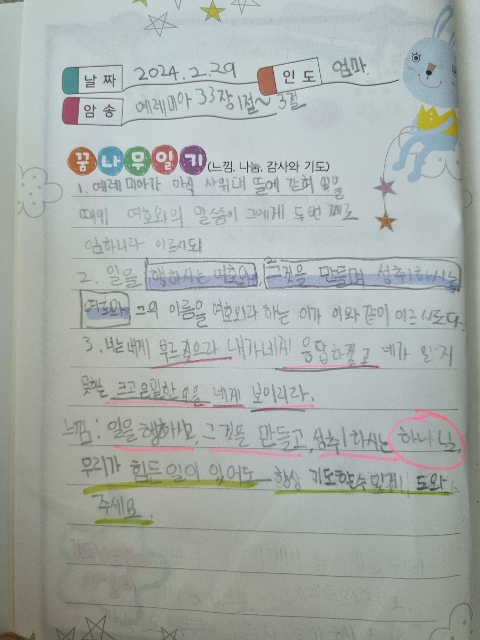 날짜 2024.2.29 인도 엄마
암송 예레미야 33장 1절~3절
꿈나무일기 (느낌, 나눔, 감사와 기도)
1. 예레미야가 아직 시위대 뜰에 갇혀 있을
때에 여호와의 말씀이 그에게 두번 째로
임하니라 이르시되
2. 일을 행하시는 여호와, 그것을 만들며 성취하시는
여호와 그의 이름을 여호와라 하는 이가 이와 같이 이르시도다.
3. 너는 내게 부르짖으라 내가 네게 응답하겠고 네가 알지
못할 크고 은밀한 일을 네게 보이리라.
느낌: 일을 행하시고, 그것을 만들고, 성취하시는 하나님,
우리가 힘든 일이 있어도 항상 기도할 수 있게 도와
주세요.